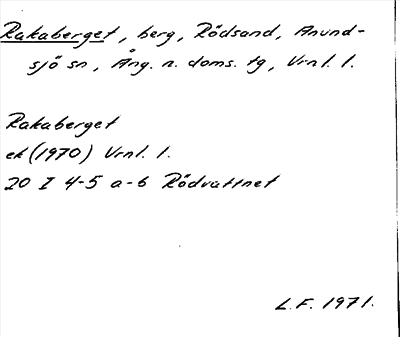 Rakaberget, berg, Rödsand, Anund-
sjö sn, Ång. n. doms. tg, Vrnl. l.
Rakaberget
ek (1970) Vrnl. l.
20 I 4-5 a-b Rödvattnet
L.F. 1971.